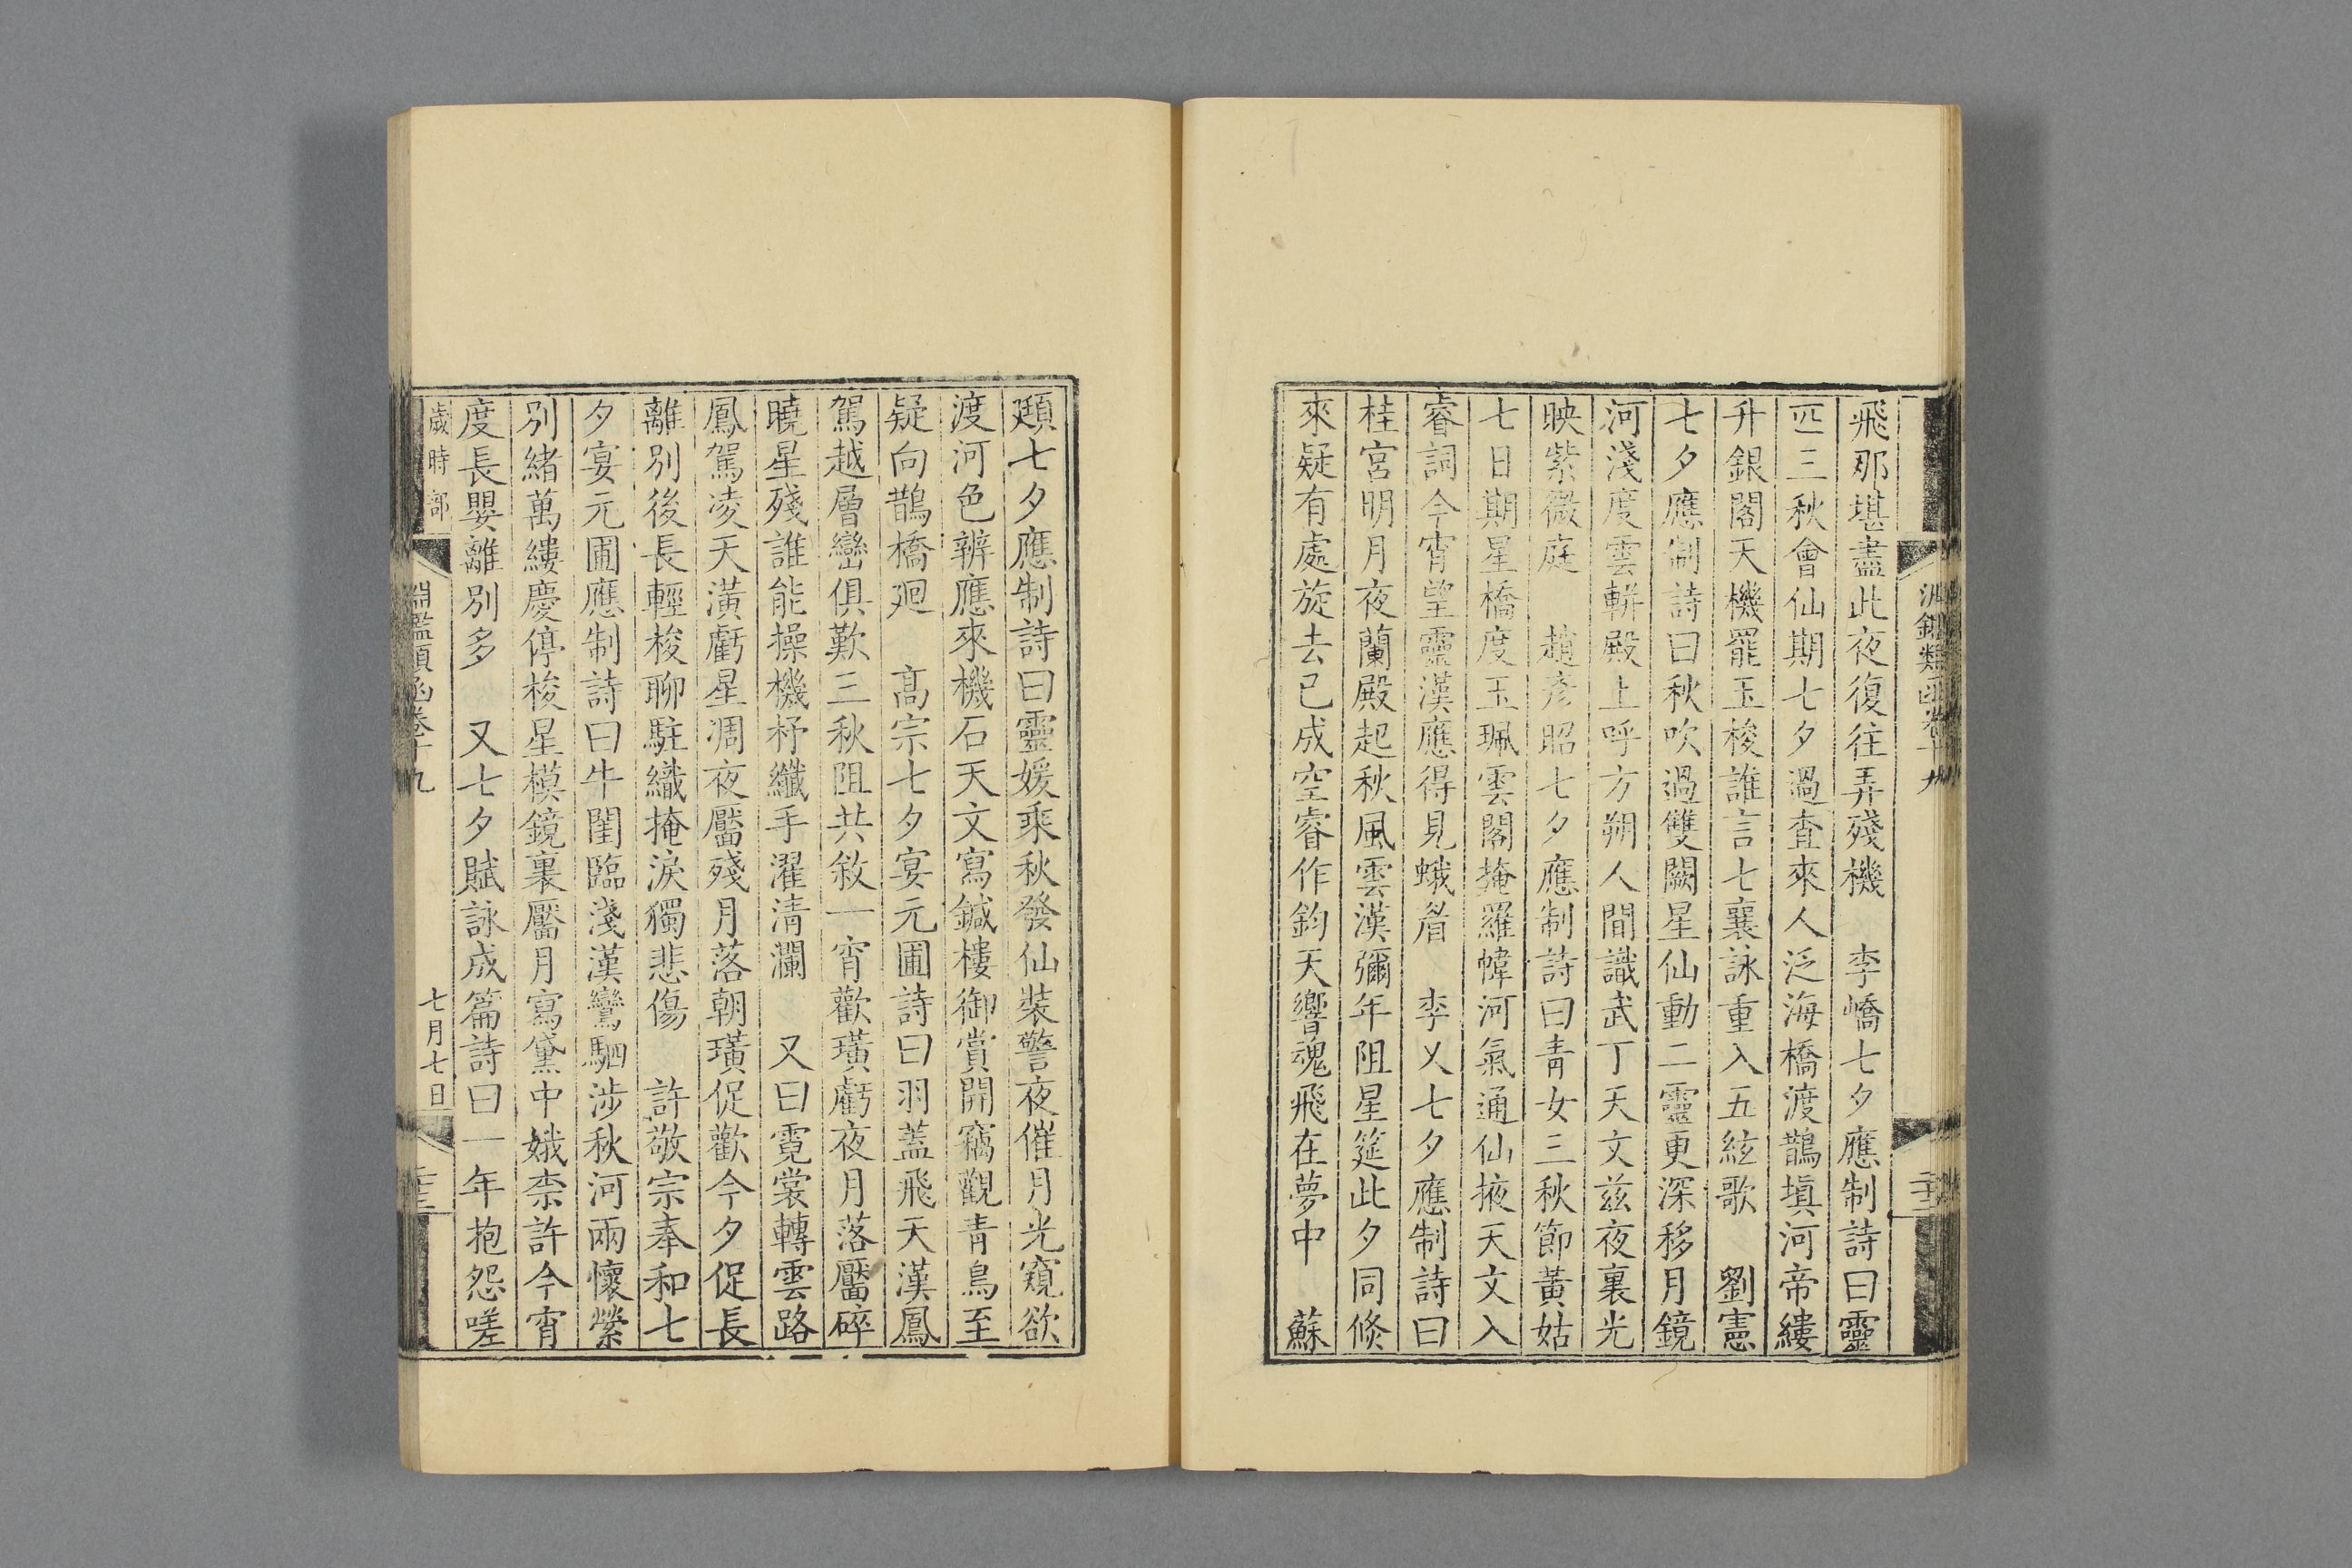 飛那堪盡此夜復往弄殘機　李嶠七夕應制詩曰靈
匹三秋會仙期七夕過査來人泛海橋渡鵲塡河帝縷
升銀閣天機罷玉梭誰言七襄詠重入五絃歌　劉憲
七夕應制詩曰秋吹過雙闕星仙動二靈更深移月鏡
河淺度雲軿殿上呼方朔人間識武丁天文兹夜裏光
映紫微庭　趙彥昭七夕應制詩曰靑女三秋節黃姑
七日期星橋度玉珮雲閣掩羅幃河氣通仙掖天文入
睿詞今宵望靈漢應得見蛾眉　李乂七夕應制詩曰
桂宮明月夜蘭殿起秋風雲漢彌年阻星筵此夕同倐
來疑有處旋去已成空睿作鈞天響魂飛在夢中　蘇
頲七夕應制詩曰靈媛乘秋發仙裝警夜催月光窺欲
渡河色辨應來機石天文寫鍼樓御賞開竊觀靑鳥至
疑向鵲橋廻　高宗七夕宴元圃詩曰羽蓋飛天漢鳳
駕越層巒俱歎三秋阻共敘一宵歡璜虧夜月落靨碎
曉星殘誰能操機杼纖手濯淸瀾　又曰霓裳轉雲路
鳳駕凌天潢虧星凋夜靨殘月落朝璜促歡今夕促長
離別後長輕梭聊駐織掩淚獨悲傷　許敬宗奉和七
夕宴元圃應制詩曰牛閨臨淺漢鸞駟涉秋河兩懷縈
別緒萬縷慶停梭星模鏡裏靨月寫黛中娥柰許今宵
度長嬰離別多　又七夕賦詠成篇詩曰一年抱怨嗟
歲時部
淵鑑類函卷十九
七月七日